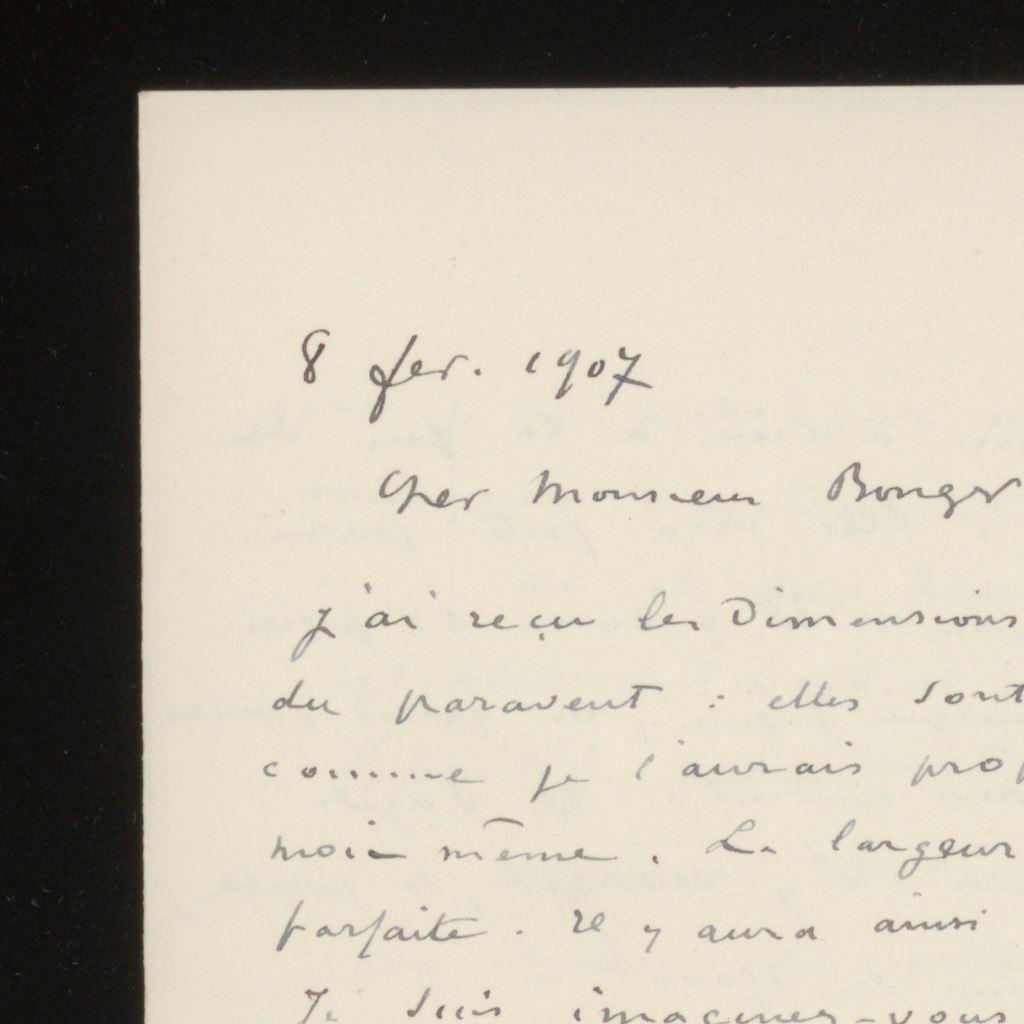 8 fev. 1907
Cher Monsieur Bonger
J'ai reçu les Dimensions
du paravent : elles sont
comme je l'aurais prop
moi même . La largeur
parfaite . Il y aura ainsi
Je suis imaginez-vous